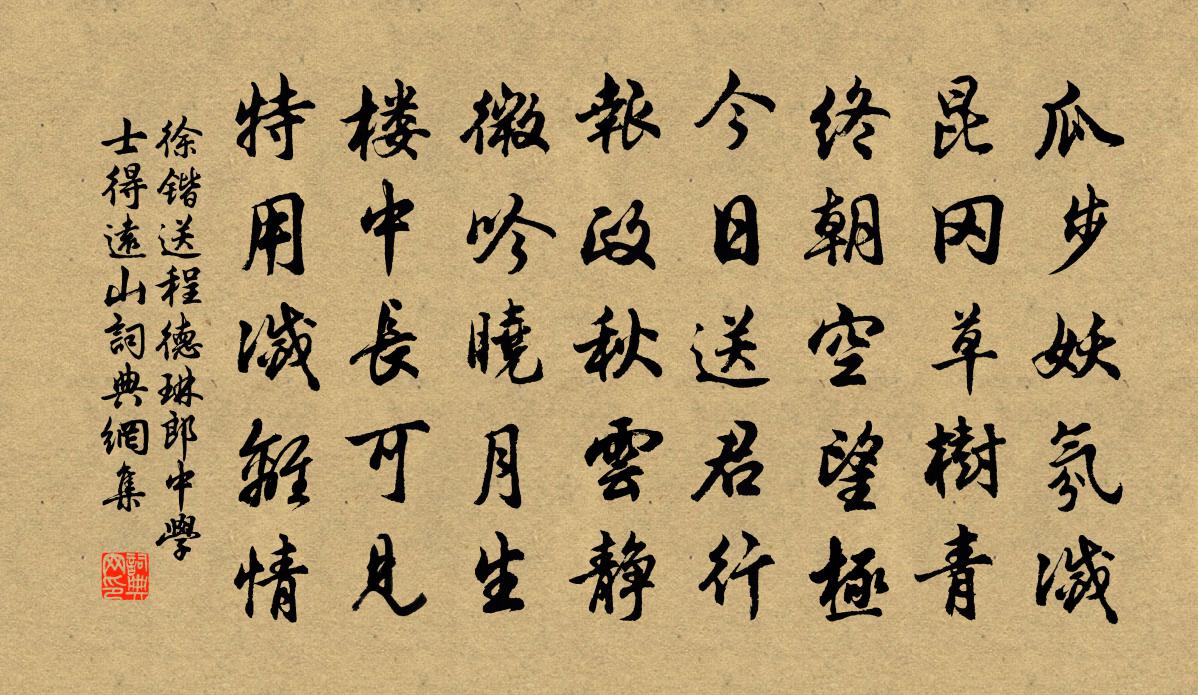 瓜步妖氛滅
昆岡草樹青
終朝空望極
今日送君行
報政秋雲静
微吟曉月生
楼中長可見
特用滅離情
徐鍇送程德琳郎中學
士得遠山詞典網集
詞典
网印